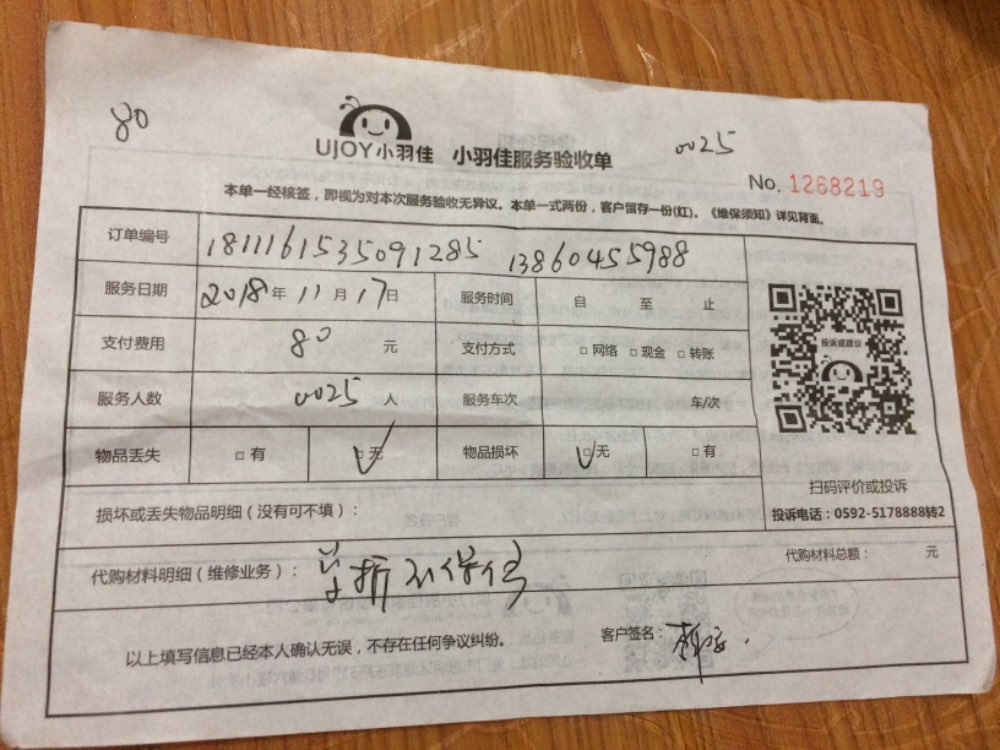 80
UJOY小羽佳 小羽佳服务验收单
0025
No. 1268219
本单一经核签，即视为对本次服务验收无异议。本单一式两份，客户留存一份(红)。《维保须知》详见背面。
订单编号 1811161535091285 13860455988
服务日期 2018年 11月 17日 服务时间 自 至 止
支付费用 80 元 支付方式 □网络 □现金 □转账
服务人数 0025 人 服务车次 车/次
物品丢失 □有 □无 ✓ 物品损坏 □无 ✓ □有
投诉或建议
扫码评价或投诉
投诉电话：0592-5178888转2
损坏或丢失物品明细（没有可不填）：
代购材料明细（维修业务）： 单拆不保修
代购材料总额： 元
以上填写信息已经本人确认无误，不存在任何争议纠纷。 客户签名：